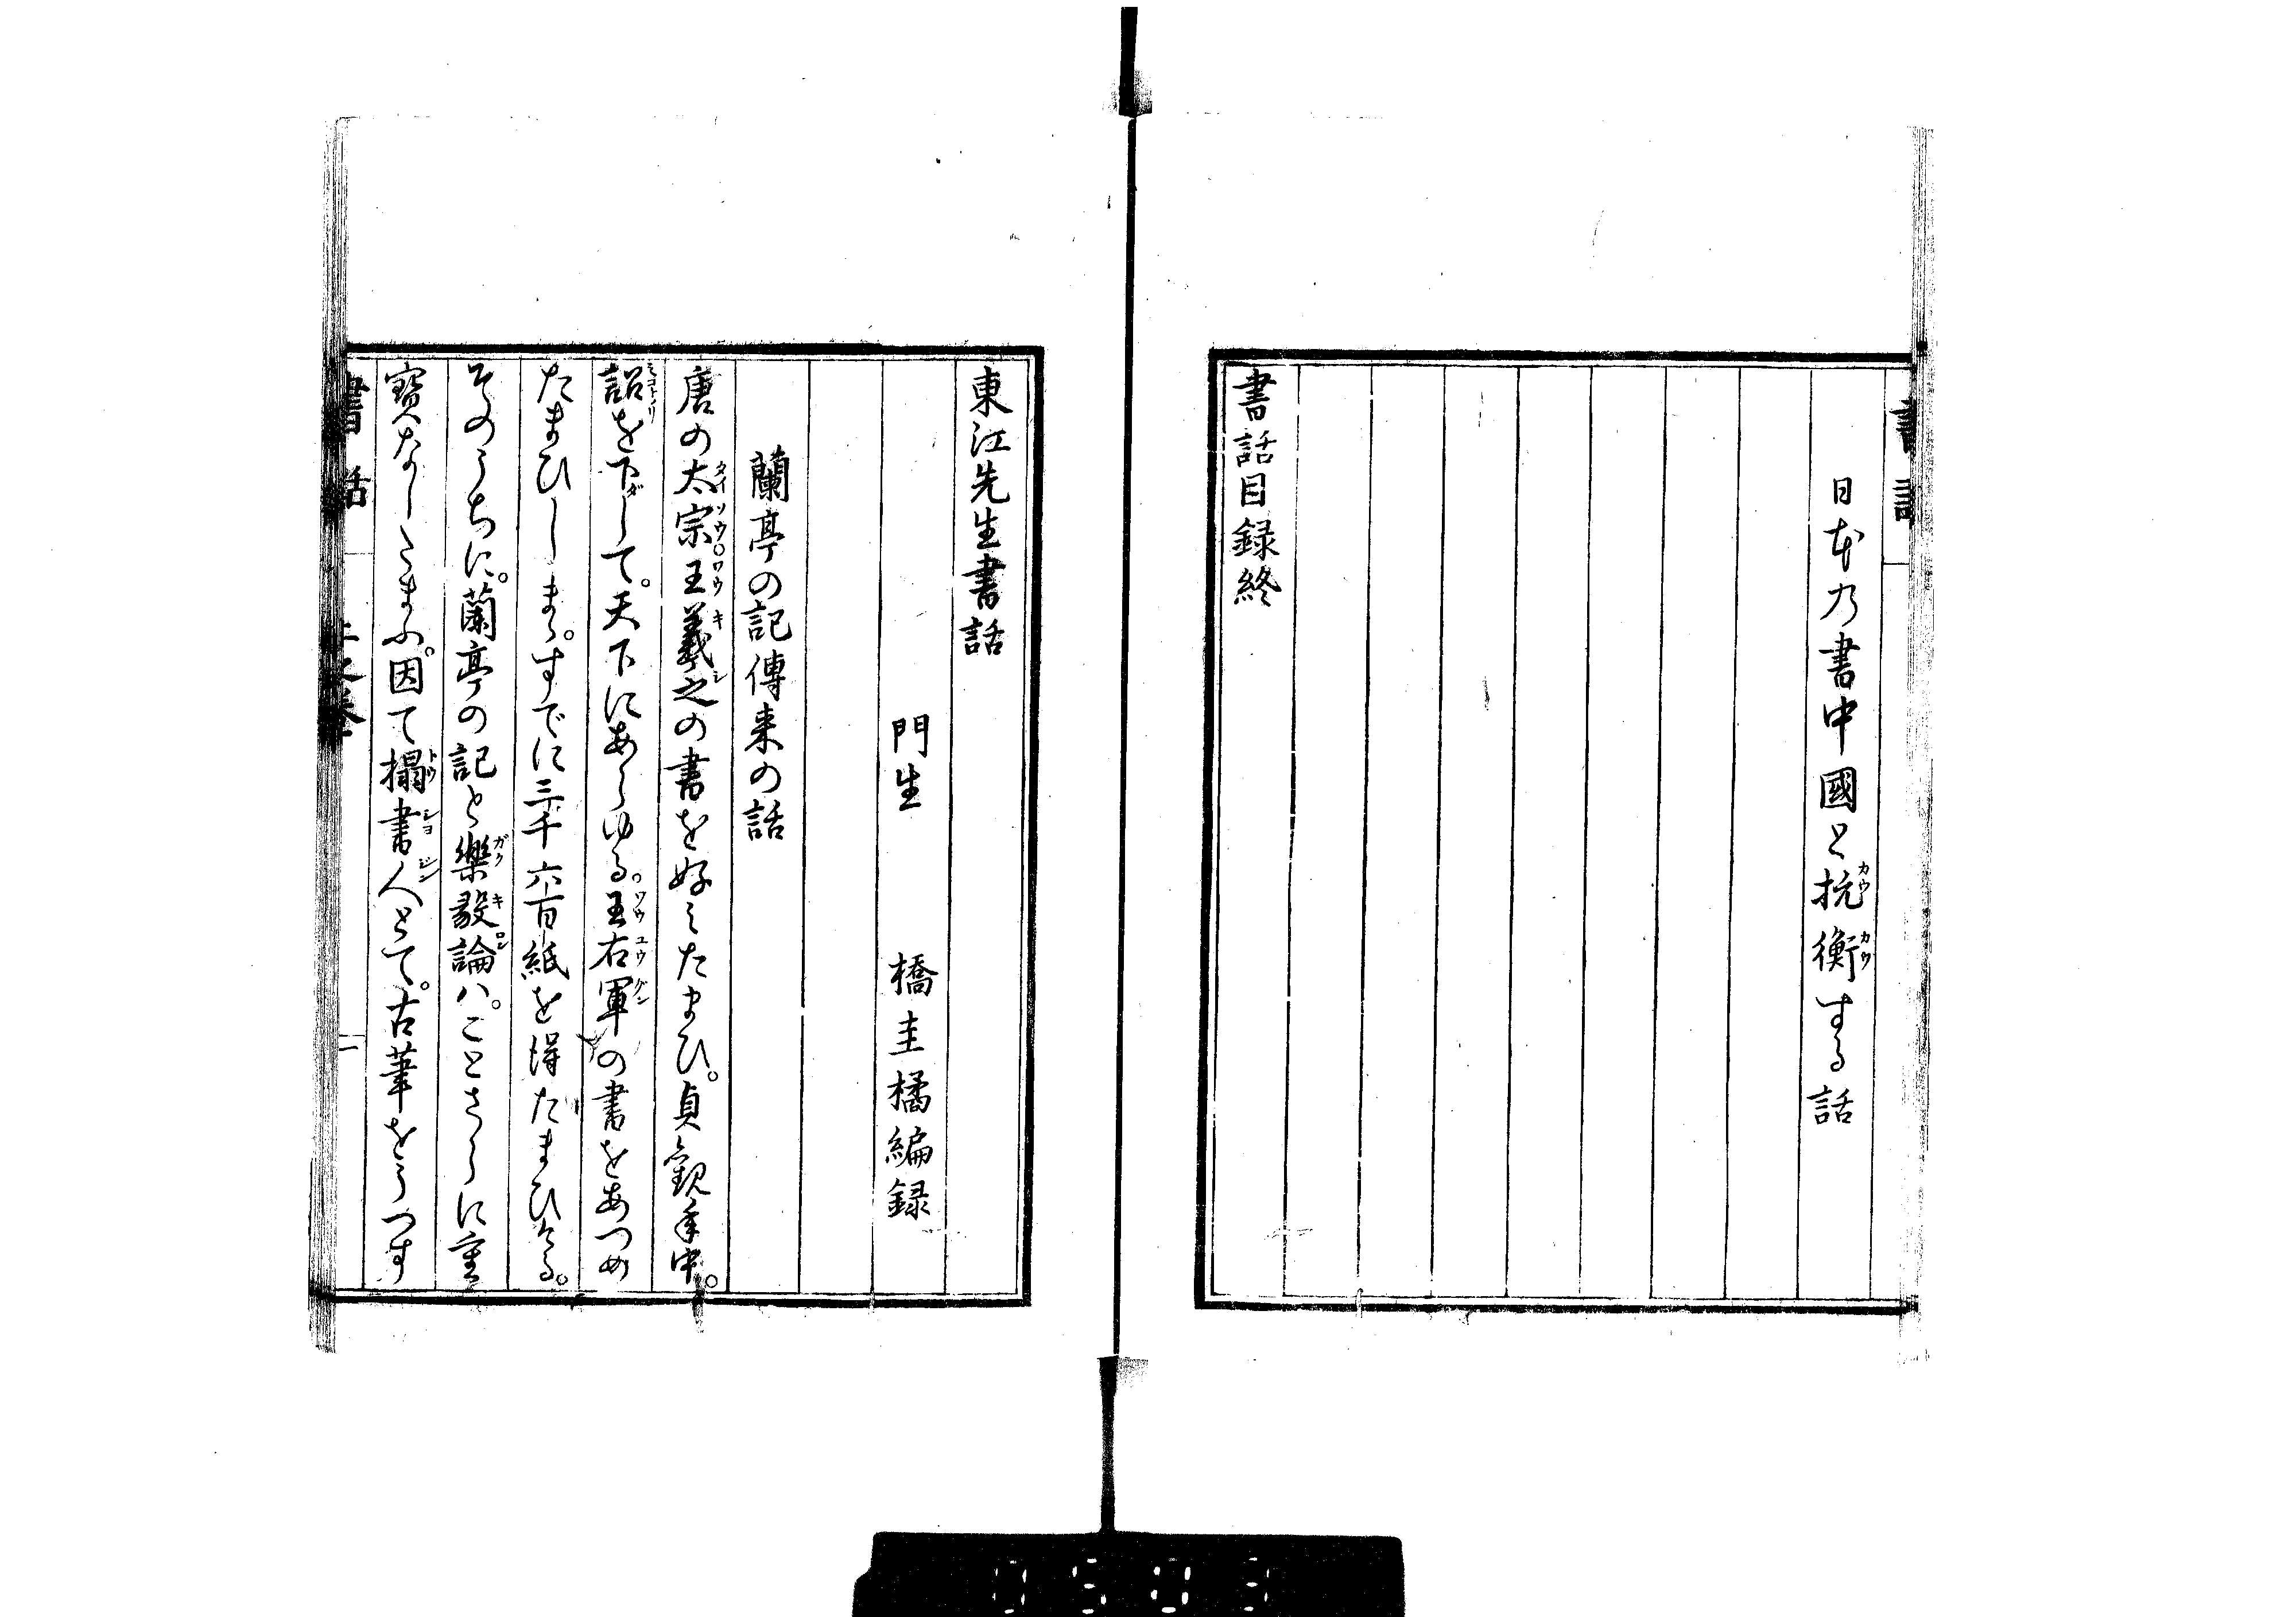 日本乃書中國と抗衡する話
書話目録終
東江先生書話
門生　橋圭橘編録
蘭亭の記傳来の話
唐の太宗。王羲之の書を好みたまひ。貞観年中。
詔を下して。天下にあらゆる。王右軍の書をあつめ
たまひしまゝ。すでに三千六百紙を得たまひける。
そのうちに。蘭亭の記と樂毅論ハ。ことさらに重
寳なしたまふ。因て搨書人とて。古筆をうつす
書話